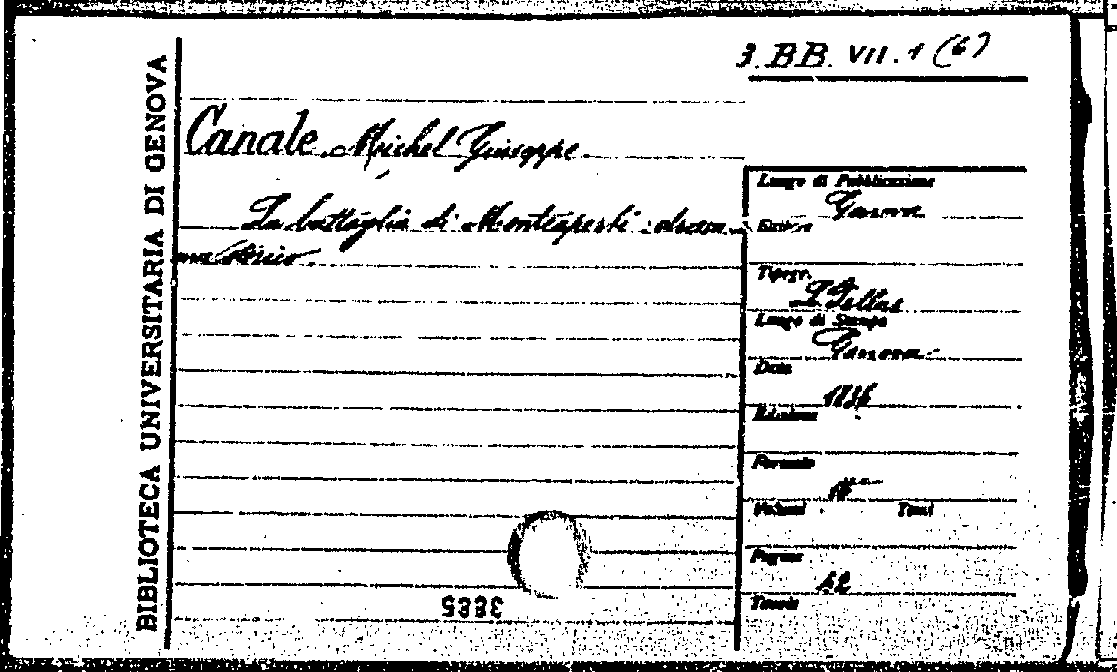 3. BB. VII. 1 (6)
BIBLIOTECA UNIVERSITARIA DI GENOVA
Canale Michel Giuseppe.
La battaglia di Montaperti:
storico.
Luogo di Pubblicazione
Genova
Editore
Tipogr.
Luogo di Stampa
Genova
Data
1836
Edizione
Formato
Volumi Tomi
Pagine
42
Tavole
3885